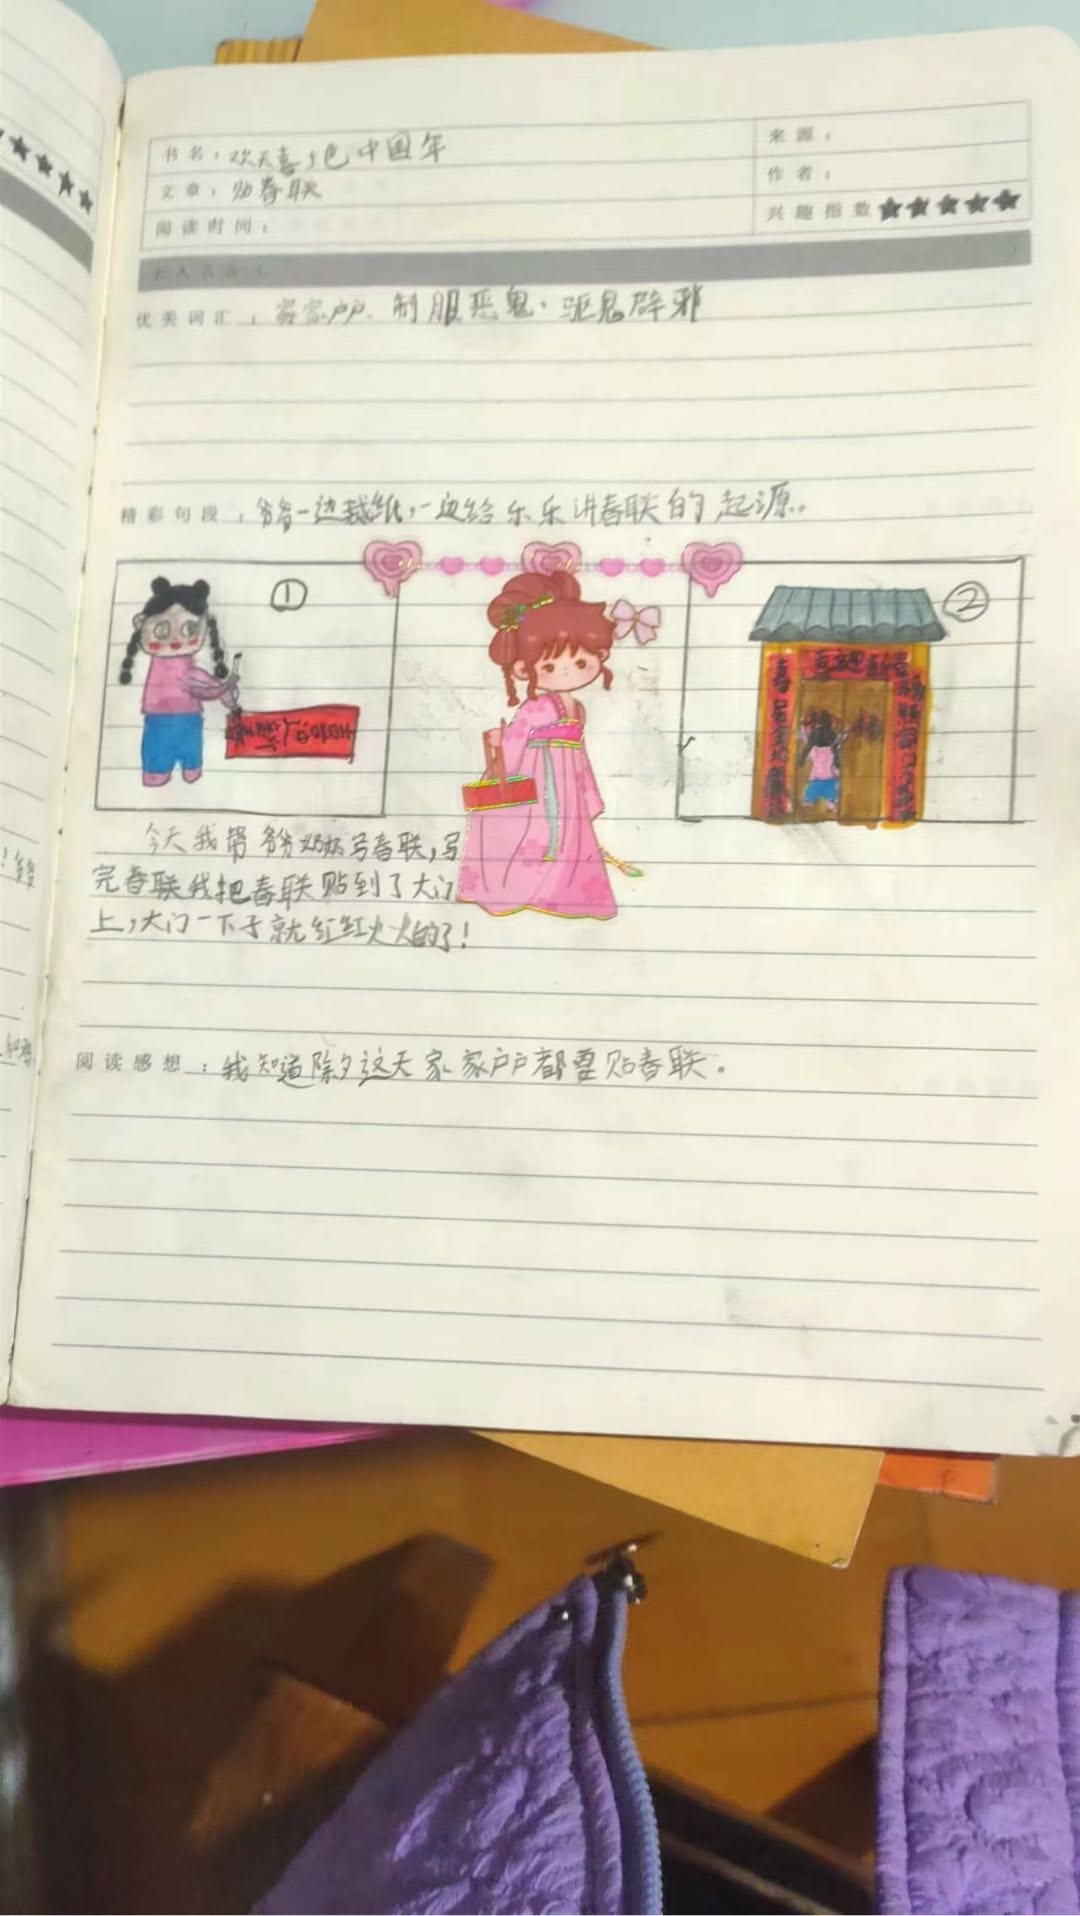 书名：欢天喜地中国年
来源：
文章：贴春联
作者：
阅读时间：
兴趣指数★★★★★
优美词汇：家家户户、制服恶鬼、驱鬼辟邪
精彩句段：爷爷一边裁纸，一边给乐乐讲春联的起源。
①
②
喜迎新春
喜迎新春
福 福
今天我帮爷爷奶奶写春联，写
完春联我把春联贴到了大门
上，大门一下子就红红火火的了！
阅读感想：我知道除夕这天家家户户都要贴春联。